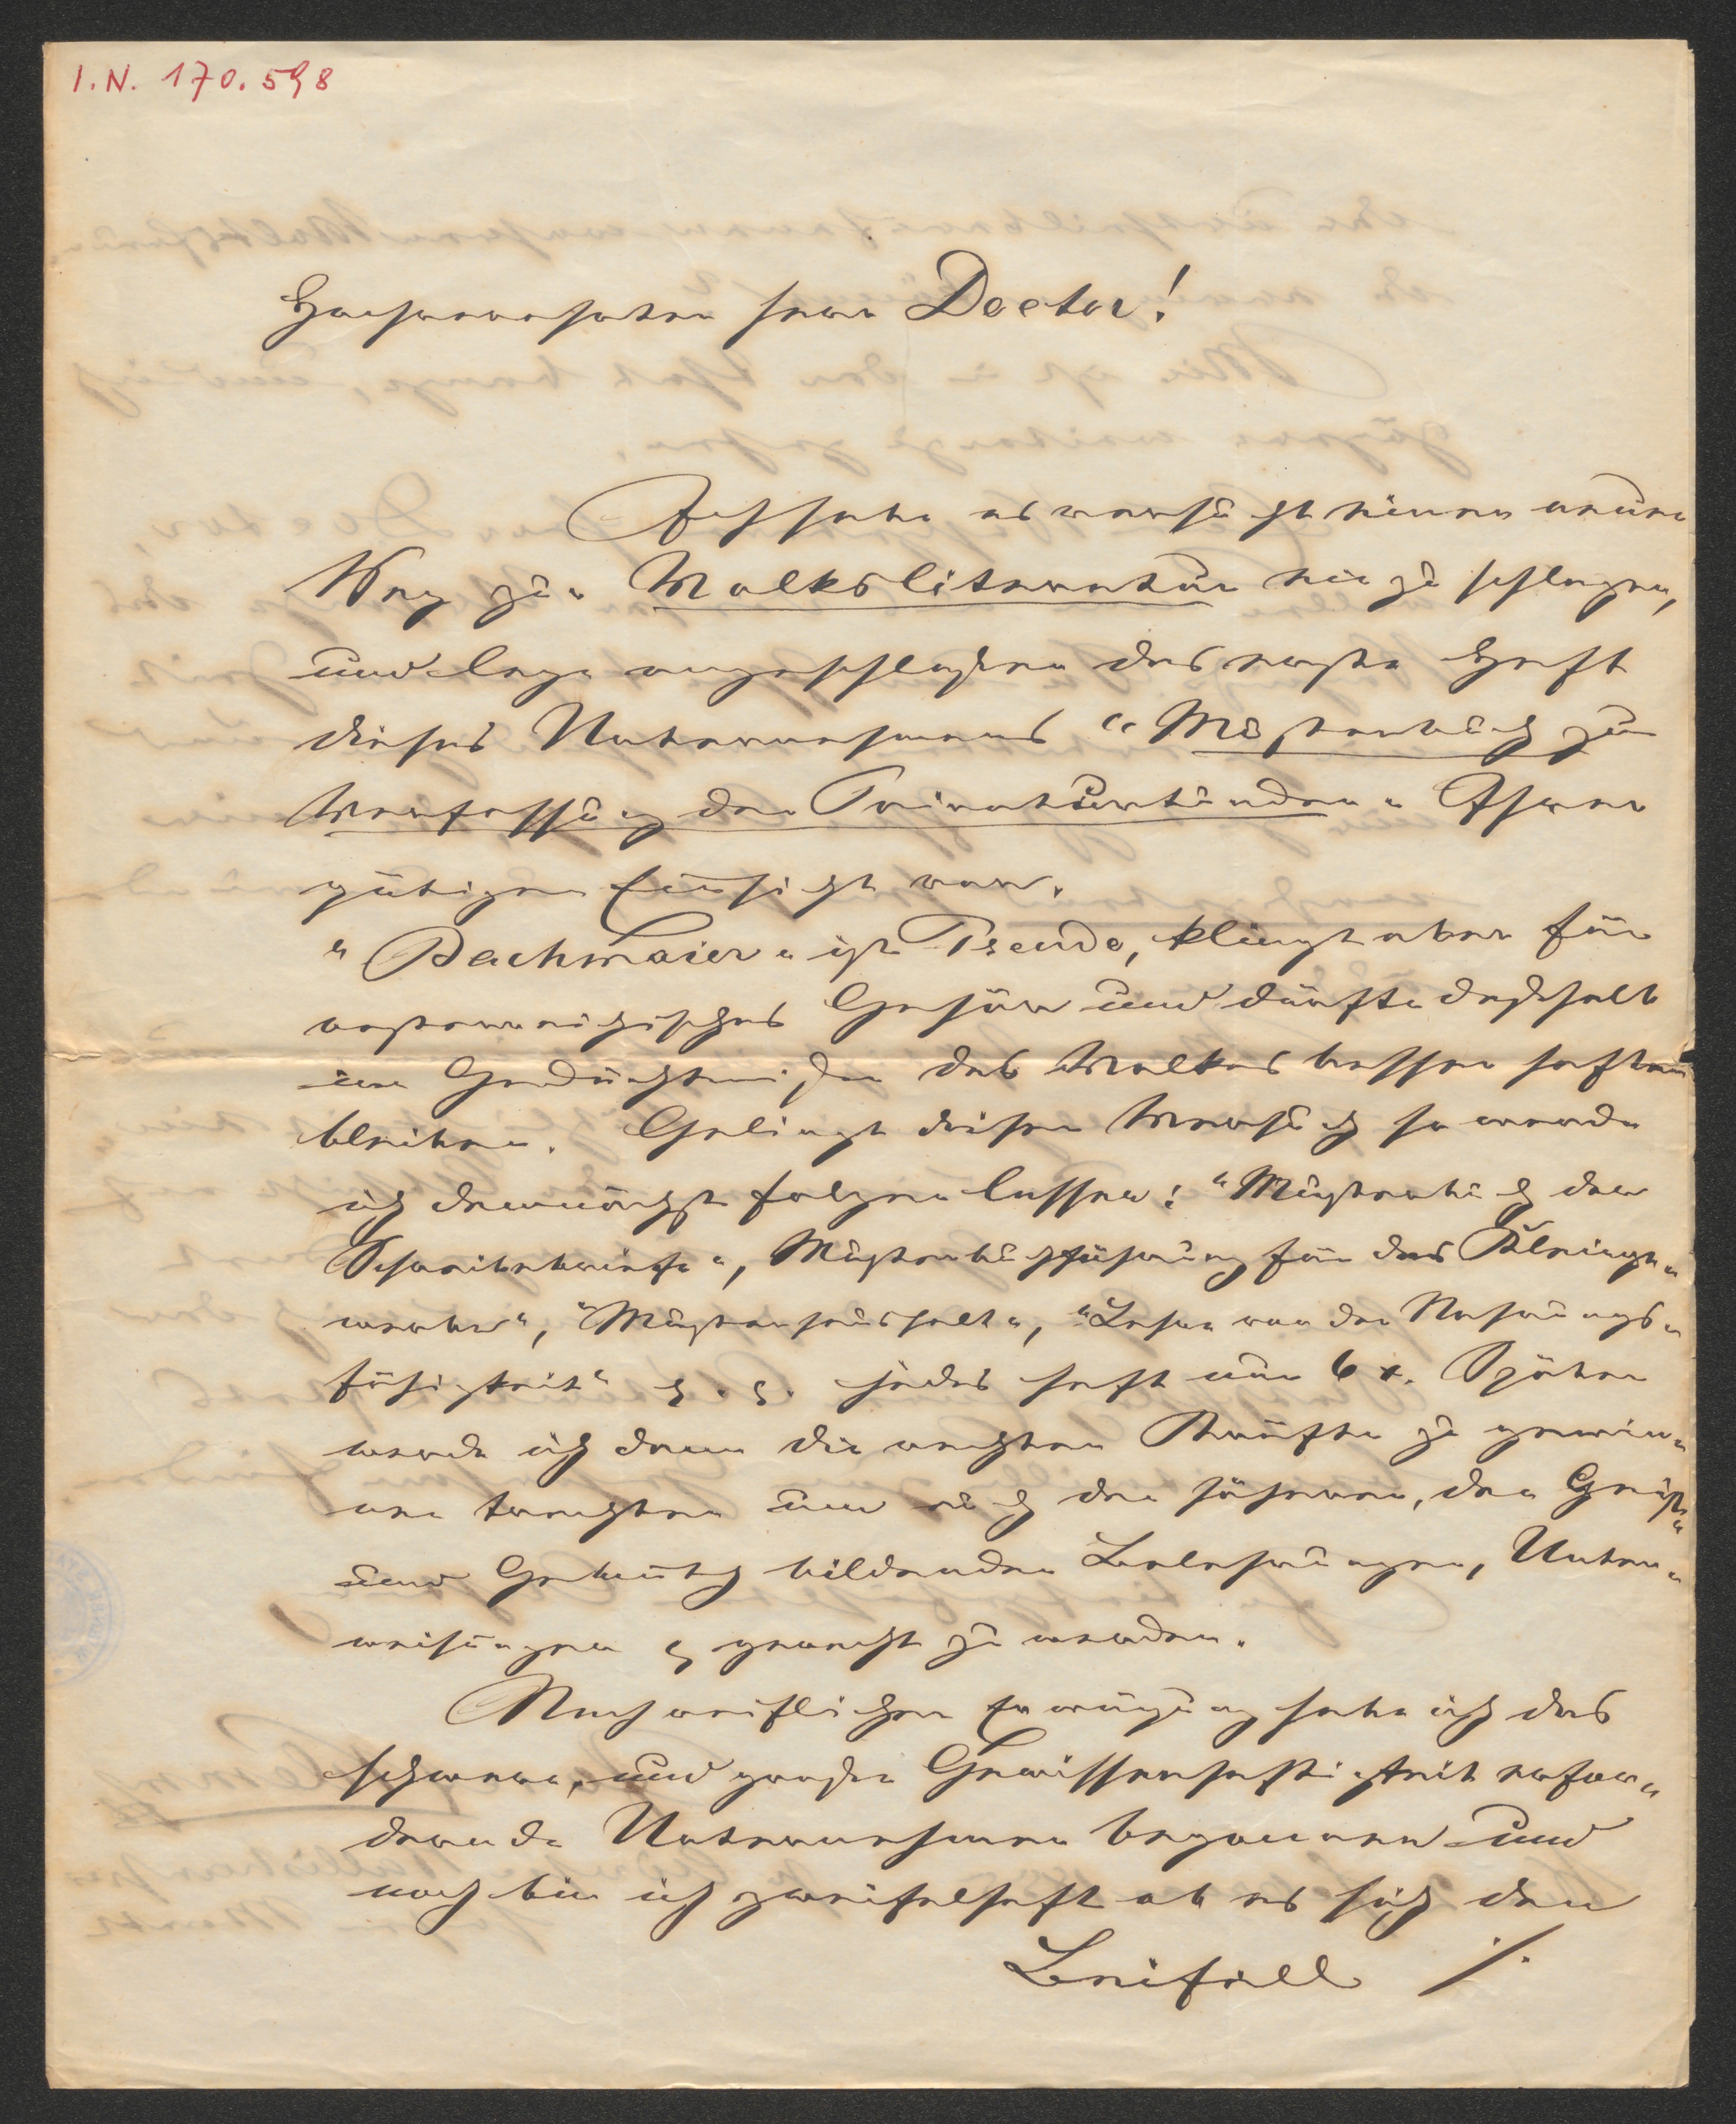 I.N. 170.598
Hochverehrter Herr Doctor!
Ich habe es versucht einen neuen
Weg zur Volksliteratur einzuschlagen,
und lege angeschlossen das erste Heft
dieses Unternehmens "Musterbuch zur
Verfassung der Privaturkunden" Ihrer
gütigen Einsicht vor.
"Bachmaier" ist Pseudo, klingt aber für
oesterreichisches Gehör und dürfte deßhalb
im Gedächtnisse des Volkes besser haften
bleiben. Gelingt dieser Versuch so werde
ich demnächst folgen lassen: "Musterbuch der
Schreibebriefe", Musterbuchführung für das Kleinge-
werbe", "Musterhaushalt", "Lehre von der Nahrungs-
fähigkeit" etc. etc. jedes Heft nur 6 x. Später
werde ich dann die rechten Kräfte zu gewin-
nen trachten um auch den höheren, den Geist
und Gemüth bildenden Belehrungen, Unter-
weisungen etc gerecht zu werden.
Nach reiflicher Erwägung habe ich das
schwere, und große Gewissenhaftigkeit erfor-
dernde Unternehmen begonnen und
noch bin ich zweifelhaft ob es sich den
Beifall ./.